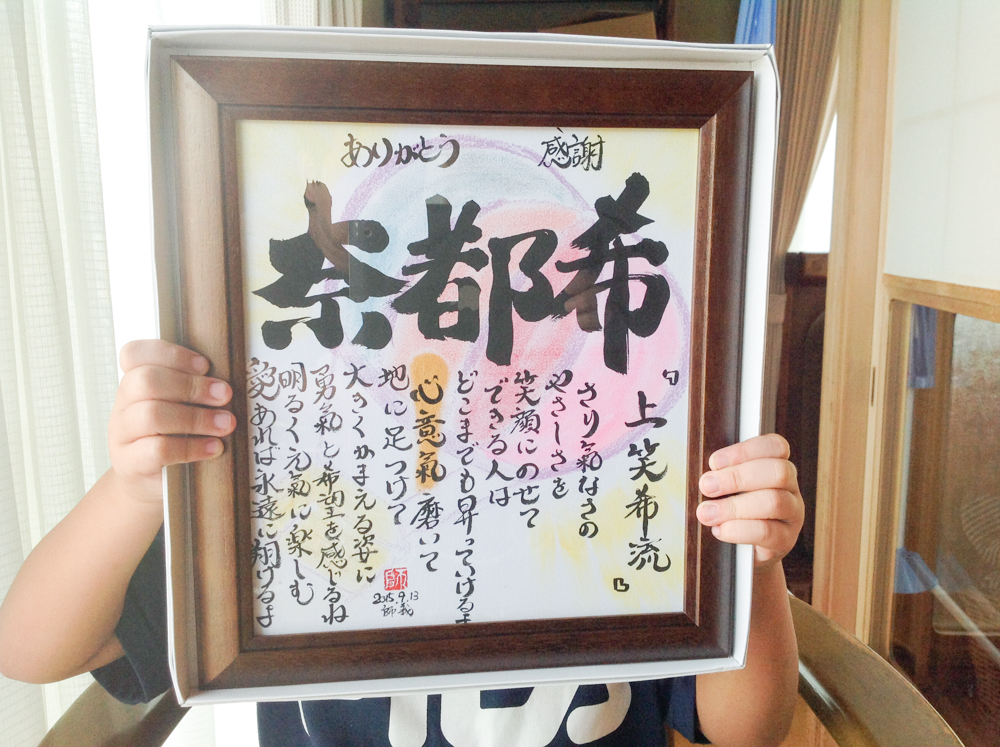 ありがとう 感謝
奈都希
『上笑希流』
さり氣なさの
やさしさを
笑顔にのせて
できる人は
どこまでも昇っていけるよ
心意氣磨いて
地に足つけて
大きくかまえる姿に
勇氣と希望を感じるね
明るく元氣に楽しむ
愛あれば永遠に翔けるよ
2015.9.13